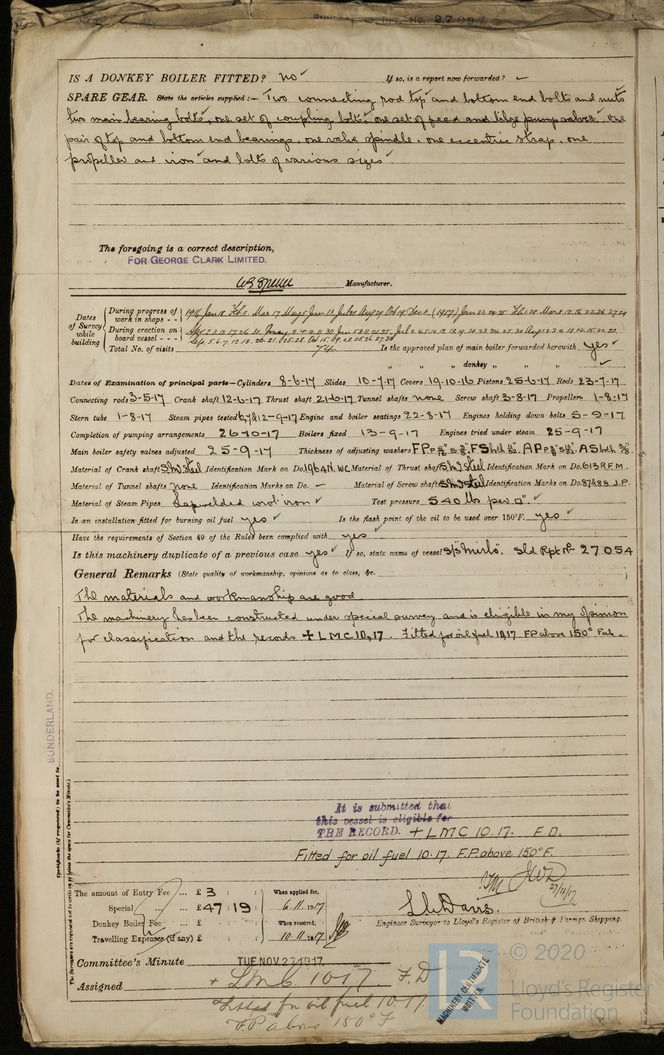 IS A DONKEY BOILER FITTED? No If so, is a report now forwarded? –
SPARE GEAR. State the articles supplied:— Two connecting rod top and bottom end bolts and nuts
two main bearing bolts, one set of coupling bolts, one set of feed and bilge pump valves, one
pair of top and bottom end bearings, one valve spindle, one eccentric strap, one
propeller and iron and bolts of various sizes
The foregoing is a correct description,
FOR GEORGE CLARK LIMITED.
Manufacturer.
Dates of Survey while building
During progress of work in shops - -
During erection on board vessel - - -
Total No. of visits 74 Is the approved plan of main boiler forwarded herewith yes
" " " donkey " " "
Dates of Examination of principal parts—Cylinders 8-6-17 Slides 10-7-17 Covers 19-10-16 Pistons 25-6-17 Rods 23-7-17
Connecting rods 3-5-17 Crank shaft 12-6-17 Thrust shaft 21-6-17 Tunnel shafts none Screw shaft 3-8-17 Propeller 1-8-17
Stern tube 1-8-17 Steam pipes tested 6,7&12-9-17 Engine and boiler seatings 22-8-17 Engines holding down bolts 5-9-17
Completion of pumping arrangements 26-10-17 Boilers fixed 13-9-17 Engines tried under steam 25-9-17
Main boiler safety valves adjusted 25-9-17 Thickness of adjusting washers
Material of Crank shaft S.M. Steel Identification Mark on Do. 1964N.W.C Material of Thrust shaft S.M. Steel Identification Mark on Do. 613R.F.M.
Material of Tunnel shafts none Identification Marks on Do. – Material of Screw shaft S.M. Steel Identification Marks on Do. 8748S.J.P.
Material of Steam Pipes Lapwelded wrot iron Test pressure 540 lbs per □"
Is an installation fitted for burning oil fuel yes Is the flash point of the oil to be used over 150°F. yes
Have the requirements of Section 49 of the Rules been complied with yes
Is this machinery duplicate of a previous case yes If so, state name of vessel S/S "Mirlo". Sld Rpt No 27054
General Remarks (State quality of workmanship, opinions as to class, &c.
The materials and workmanship are good.
The machinery has been constructed under special survey and is eligible in my opinion
for classification and the records + LMC 10,17. Fitted for oil fuel 10,17 F.P above 150° Fah.
SUNDERLAND.
It is submitted that
this vessel is eligible for
THE RECORD. + LMC 10.17. F.D.
Fitted for oil fuel 10.17. F.P. above 150°F.
JWD
27/11/17
The amount of Entry Fee ... £ 3 : : When applied for,
Special ... £ 47 : 19 : 6.11.1917
Donkey Boiler Fee ... £ : : When received,
Travelling Expenses (if any) £ : : 10.11.1917
Engineer Surveyor to Lloyd's Register of British & Foreign Shipping.
Committee's Minute TUE. NOV. 27 1917.
Assigned + L.M.C. 10.17 F.D
Fitted for oil fuel 10.17
F.P. above 150°F
MACHINERY CERTIFICATE WRITTEN.
© 2020
Lloyd's Register
Foundation